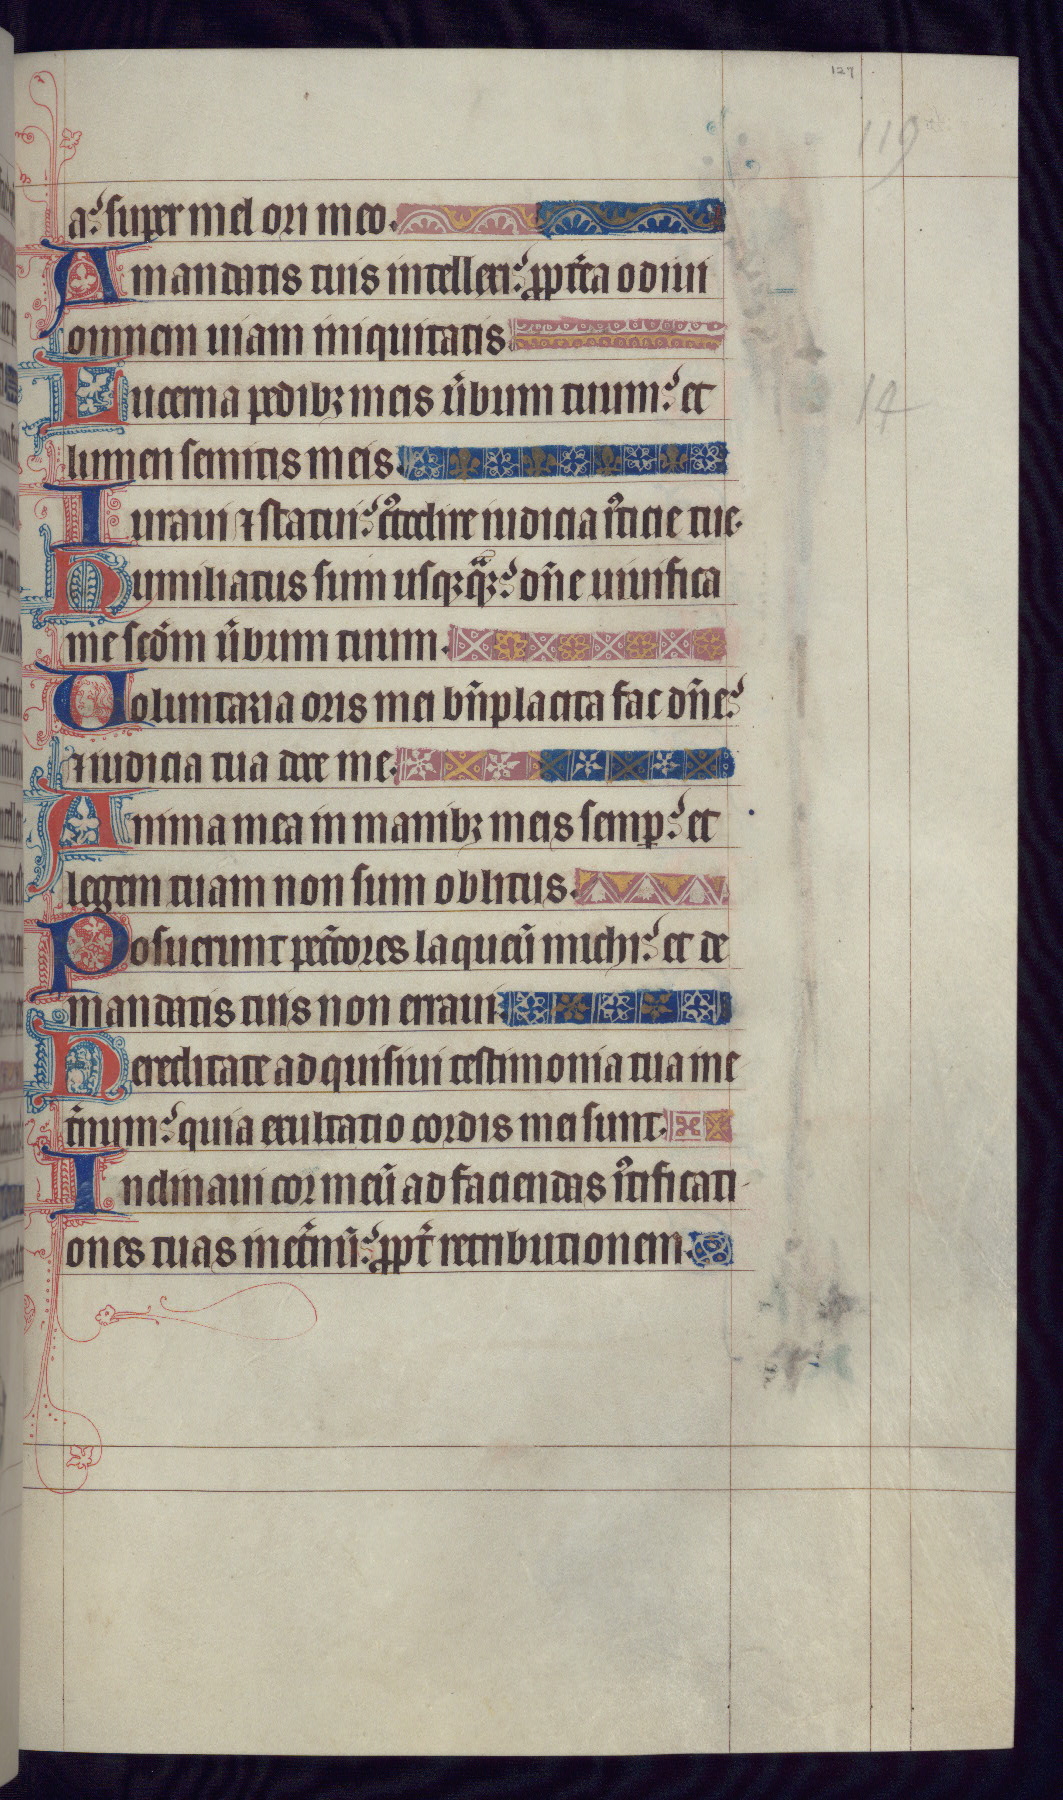 127
119
a: super mel ori meo.
A mandatis tuis intellexi: ꝓpt̄ea odiui
omnem uiam iniquitatis.
Lucerna pedibꝫ meis ůbum tuum: et
lumen semitis meis.
14
Iuraui ⁊ statui: c̊todire iudicia i̊ticie tue.
Humiliatus sum usqꝫq̈ꝫ: dn̄e uiuifica
me scd̄m ůbum tuum.
Uoluntaria oris mei bn̄placita fac dn̄e:
⁊ iudicia tua doce me.
Anima mea in manibꝫ meis semꝑ: et
legem tuam non sum oblitus.
Posuerunt pec̄cores laqueū michi: et de
mandatis tuis non erraui.
Hereditate adquisiui testimonia tua ine
t̄num: quia exultatio cordis mei sunt.
Inclinaui cor meū ad faciendas i̊tificati
ones tuas inet̄nū: ꝓpt̄ retributionem.